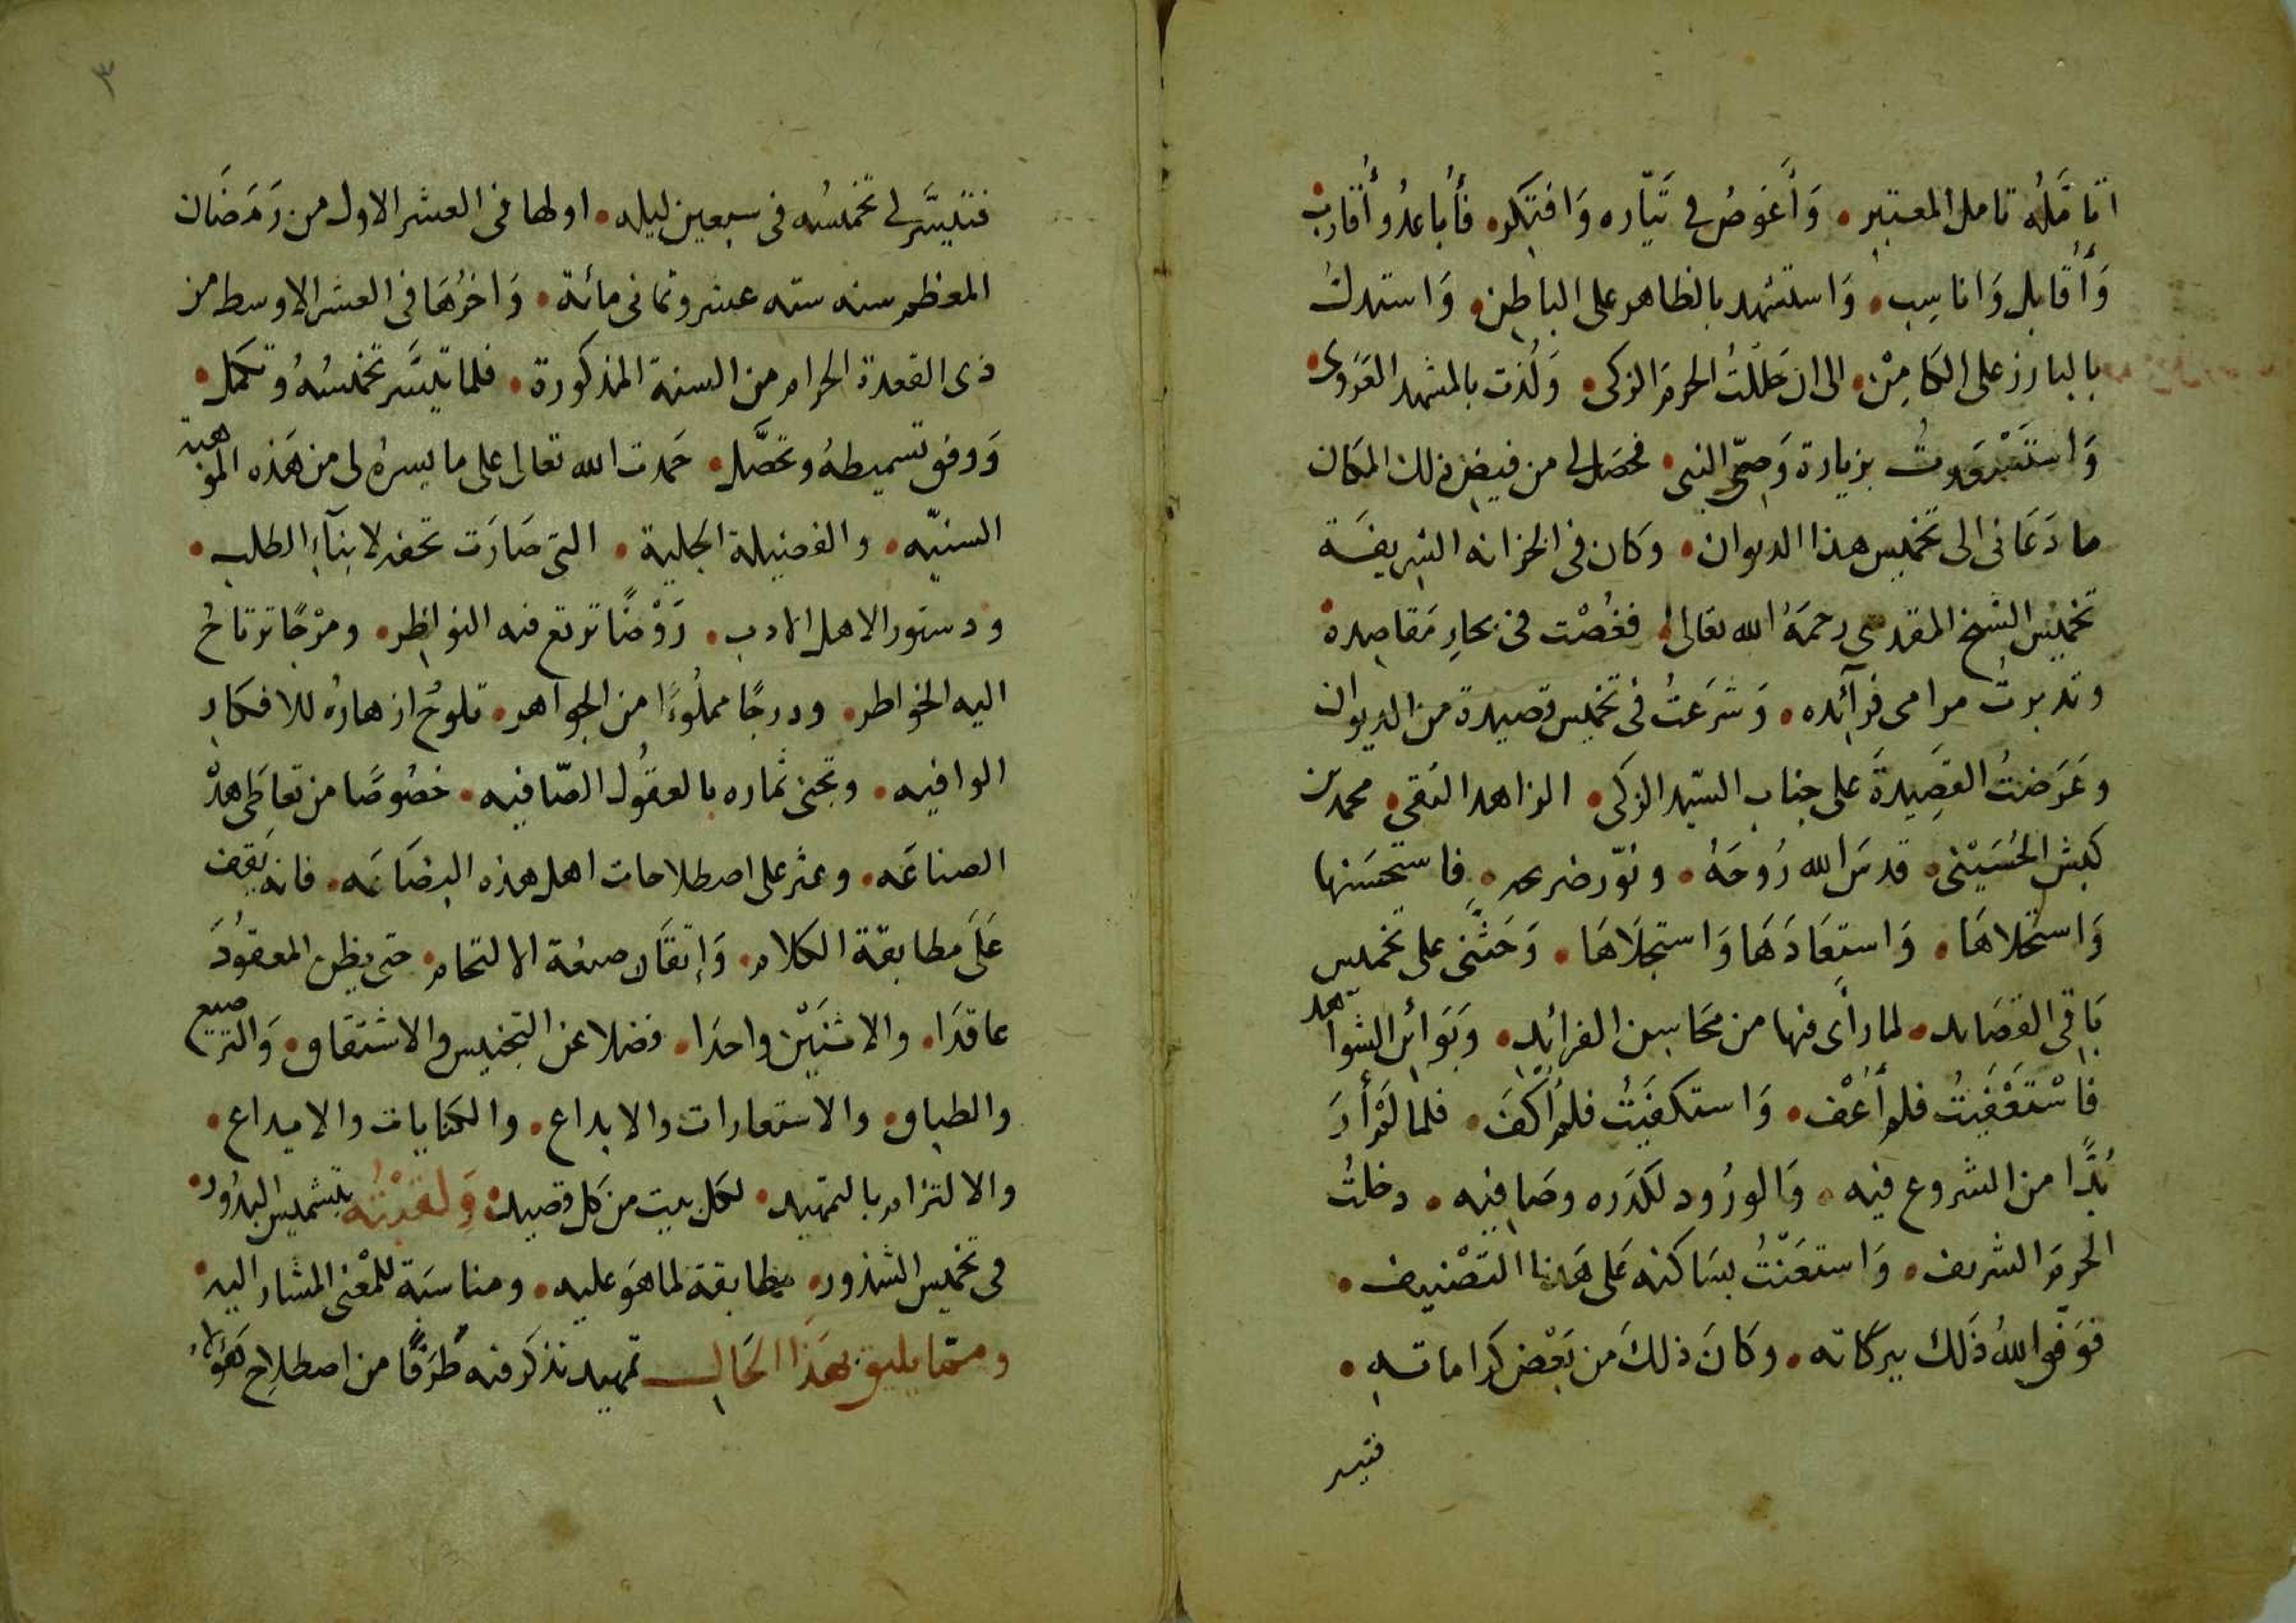 اتامَّلُه تامل المعتبِر • وَأَغوصُ في تيّاره وَافتكر • فأُباعدُ وأُقارب •
وَأُقابل وَاناسِب • وَاستشهد بالظاهر على الباطِن • وَاستدلُّ
بالبارز على الكامِنْ • الى ان حَلَلتُ الحرمَ الزكى • وَلُذت بالمشهد الغَرَوى •
وَاستَسْعَدتُ بزيارة وَصِىّ النبى • فحصَل لى من فيض ذلك المكان
ما دَعَانى الى تخميس هذا الديوان • وكان فى الخزانه الشريفَة
تخميس الشيخ المقدسى رحمَهُ الله تعالى • فغُصْت فى بحارِ مَقاصِده •
وتدبرتُ مرامى فوآئده • وَشَرَعتُ فى تخميس قصيدة من الديوان
وعَرَضتُ القَصِيدةَ على جناب السَيّد الزكى • الزاهد التقى • محمد بن
كبش الحُسَيْنى • قدسَ الله رُوحَهُ • ونوّر ضريحه • فاستحسَنها
وَاستَحلاهَا • وَاستعَادَهَا وَاستجلَاهَا • وَحَثَّنى على تخميس
بَاقى القصَايد • لما رأى فيها من محَاسِن الفرائِد • وَبَوَائن الشواهد
فاسْتَعْفَيتُ فلم أُعْف • وَاستكفَيتُ فلم أُكَفَ • فلما لم أرَ
بُدًّا من الشروع فيه • وَالورُود لكدَره وصَافيه • دخلتُ
الحرمَ الشريف • وَاستعَنْتُ بسَاكنه عَلى هَذا التَصْنيف •
فوَفّق اللهُ ذَلك ببركاته • وكانَ ذلكَ من بَعْض كراماتِه •
فتيسر
٣
فتَيسَّر لى تخميسُه فى سبعين ليله • اولها فى العشر الاول من رَمَضَان
المعظم سنه سته عشر وثمانى مائة • وَاخرُهَا فى العشر الاوسط من
ذى القعدة الحرام من السنة المذكورة • فلما تيسَّر تخميسُهُ وتكمل •
وَوفق تسميطهُ وتحصَّل • حَمدت الله تعالى على ما يسرهُ لى من هَذه الموهبة
السنيّه • والفضيلة الجلية • التى صَارَت تحفه لابنَآءِ الطلب •
ودستور الاهل الادب • رَوْضًا ترتع فيه النواظِر • ومرْجًا ترتاحُ
اليه الخواطر • ودرجًا مملُوءًا من الجواهر • تلوحُ ازهارهُ للافكار
الوافيه • وتجنى ثماره بالعقُول الصّافيه • خصُوصًا من تعاطَى هذه
الصناعَه • وعثر على اصطلاحات اهل هذه البضَاعَه • فانه يَقف
عَلَى مطابقة الكلام • وَإتقان صنعة الالتحام • حتى يظن المعقودَ
عاقدَا • والاثنَيْن واحدَا • فضلا عن التجنيس والاشتقاق • وَالترصيع
والطباق • والاستعارات والابداع • والكنايات والايداع •
والالتزام بالتمهيد • لكل بيت من كل قصيد • وَلقبْتُه بتشميس البدُور •
فى تخميس الشذور • مطابقة لما هوَ عليه • ومناسَبة للمعْنى المشار اليه •
وممّا يليق بهَذا الحَال تمهيد نذكر فيه طَرَفًا من اصطلاح هَؤلاء